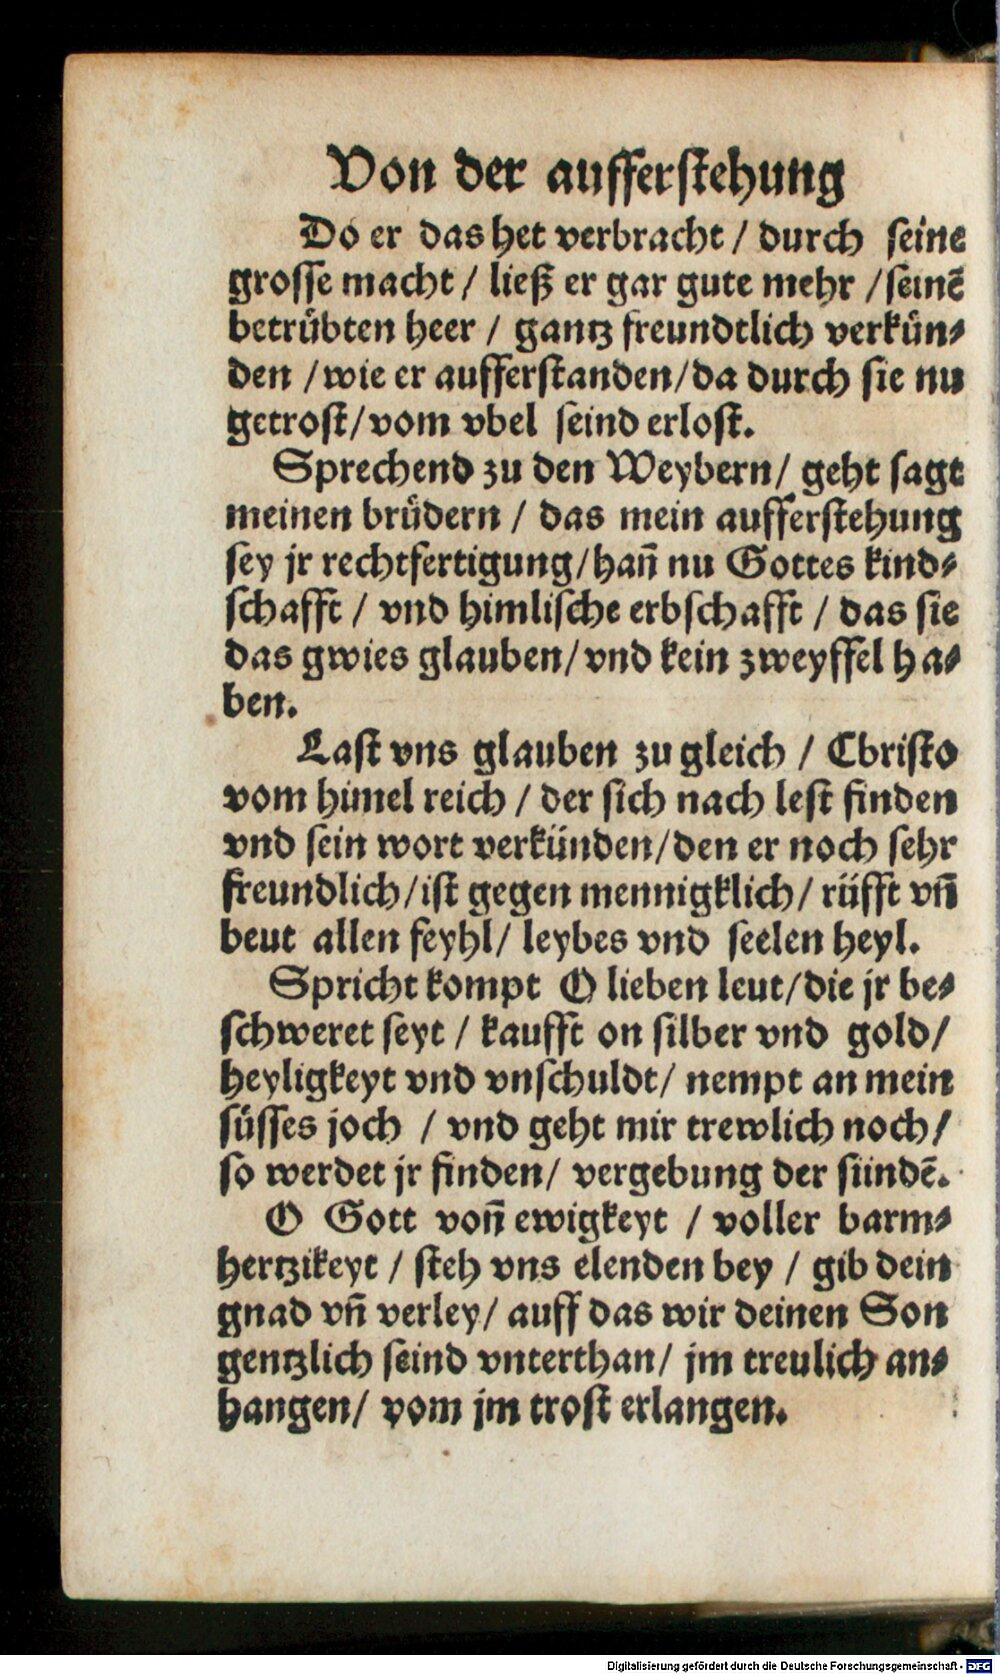 Von der aufferstehung
Do er das het verbracht / durch seine
grosse macht / ließ er gar gute mehr / seinē
betrübten heer / gantz freundtlich verkün⸗
den / wie er aufferstanden / da durch sie nu
getrost / vom vbel seind erlost.
Sprechend zu den Weybern / geht sagt
meinen brüdern / das mein aufferstehung
sey jr rechtfertigung / hañ nu Gottes kind⸗
schafft / vnd himlische erbschafft / das sie
das gwies glauben / vnd kein zweyffel ha⸗
ben.
Last vns glauben zu gleich / Christo
vom himel reich / der sich nach lest finden
vnd sein wort verkünden / den er noch sehr
freundlich / ist gegen mennigklich / rüfft vñ
beut allen feyhl / leybes vnd seelen heyl.
Spricht kompt O lieben leut / die jr be⸗
schweret seyt / kaufft on silber vnd gold /
heyligkeyt vnd vnschuldt / nempt an mein
süsses joch / vnd geht mir trewlich noch /
so werdet jr finden / vergebung der sündē.
O Gott voñ ewigkeyt / voller barm⸗
hertzikeyt / steh vns elenden bey / gib dein
gnad vñ verley / auff das wir deinen Son
gentzlich seind vnterthan / jm treulich an⸗
hangen / vom jm trost erlangen.
Digitalisierung gefördert durch die Deutsche Forschungsgemeinschaft - DFG